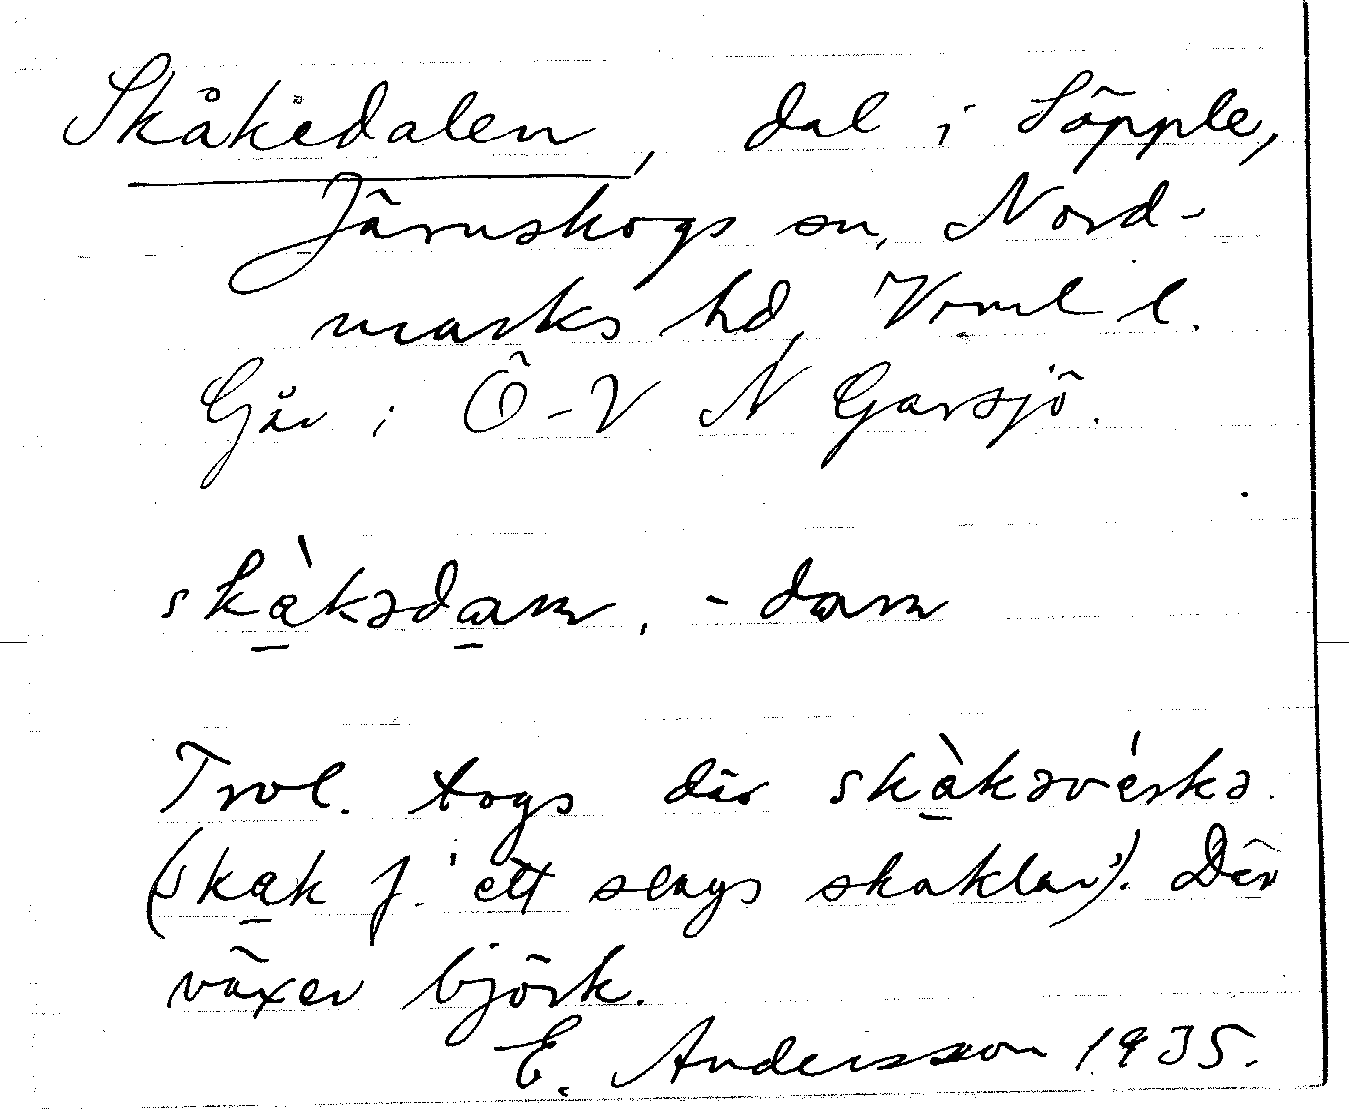 Skåkedalen, dal i Söpple,
Järnskogs sn, Nord-
marks hd, Vrml l.
Går i Ö-V N Garsjö.
skὰ̱kədα̱m, -dαm
Trol. togs där skὰ̱kəvérkə
(skα̱k f. 'ett slags skaklar'). Där
växer björk.
E. Andersson 1935.